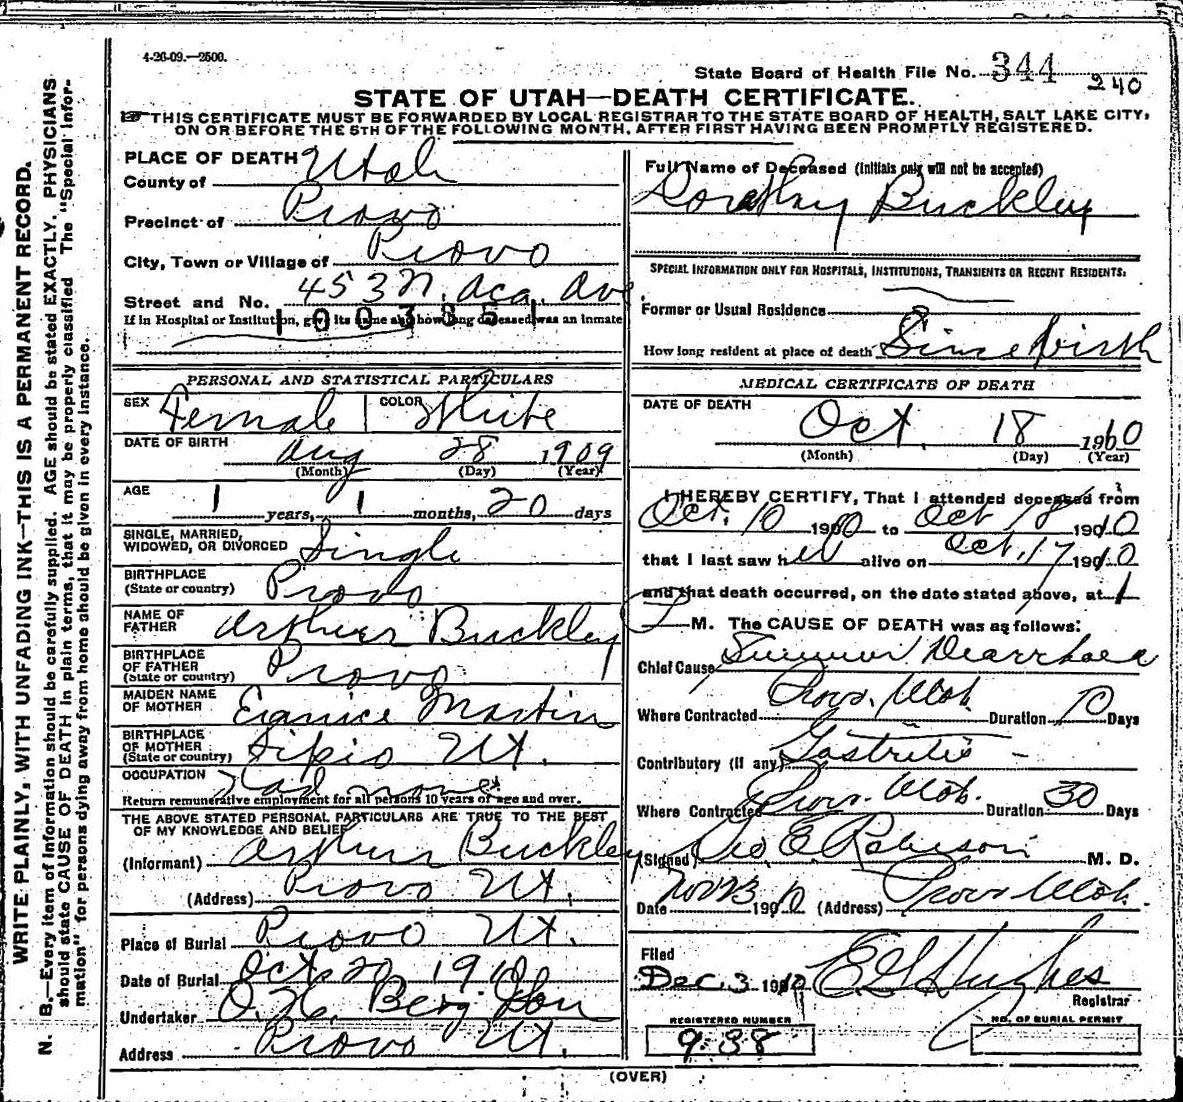 4-26-09.—2500.
State Board of Health File No. 344 240
STATE OF UTAH—DEATH CERTIFICATE.
THIS CERTIFICATE MUST BE FORWARDED BY LOCAL REGISTRAR TO THE STATE BOARD OF HEALTH, SALT LAKE CITY,
ON OR BEFORE THE 5TH OF THE FOLLOWING MONTH, AFTER FIRST HAVING BEEN PROMPTLY REGISTERED.
WRITE PLAINLY, WITH UNFADING INK—THIS IS A PERMANENT RECORD.
N. B.—Every item of information should be carefully supplied. AGE should be stated EXACTLY. PHYSICIANS
should state CAUSE OF DEATH in plain terms, that it may be properly classified The "Special Infor-
mation" for persons dying away from home should be given in every instance.
PLACE OF DEATH
County of Utah
Precinct of Provo
City, Town or Village of Provo
Street and No. 453 N. Aca. Ave
If in Hospital or Institution, give its name and how long deceased was an inmate
1003851
PERSONAL AND STATISTICAL PARTICULARS
SEX Female COLOR White
DATE OF BIRTH Aug 28 1909
(Month) (Day) (Year)
AGE 1 years, 1 months, 20 days
SINGLE, MARRIED,
WIDOWED, OR DIVORCED Single
BIRTHPLACE
(State or country) Provo
NAME OF
FATHER Arthur Buckley
BIRTHPLACE
OF FATHER
(State or country) Provo
MAIDEN NAME
OF MOTHER Eunice Martin
BIRTHPLACE
OF MOTHER
(State or country) Sipio Ut.
OCCUPATION Had none
Return remunerative employment for all persons 10 years of age and over.
THE ABOVE STATED PERSONAL PARTICULARS ARE TRUE TO THE BEST
OF MY KNOWLEDGE AND BELIEF
(Informant) Arthur Buckley
(Address) Provo Ut.
Place of Burial Provo Ut.
Date of Burial Oct 20 1910
Undertaker O. H. Berg Son
Address Provo Ut.
Full Name of Deceased (Initials only will not be accepted)
Dorothy Buckley
SPECIAL INFORMATION ONLY FOR HOSPITALS, INSTITUTIONS, TRANSIENTS OR RECENT RESIDENTS.
Former or Usual Residence
How long resident at place of death Since birth
MEDICAL CERTIFICATE OF DEATH
DATE OF DEATH
Oct. 18 1910
(Month) (Day) (Year)
I HEREBY CERTIFY, That I attended deceased from
Oct. 10 1910 to Oct 18 1910
that I last saw her alive on Oct. 17 1910
and that death occurred, on the date stated above, at 1
P M. The CAUSE OF DEATH was as follows:
Chief Cause Summer Diarrhoea
Where Contracted Provo, Utah. Duration 10 Days
Contributory (if any) Gastritis
Where Contracted Provo. Utah. Duration 30 Days
(Signed) Geo E. Robison M. D.
Date Nov 23 1910 (Address) Provo Utah.
Filed
Dec. 3 1910 E G Hughes
Registrar
REGISTERED NUMBER
938
NO. OF BURIAL PERMIT
(OVER)